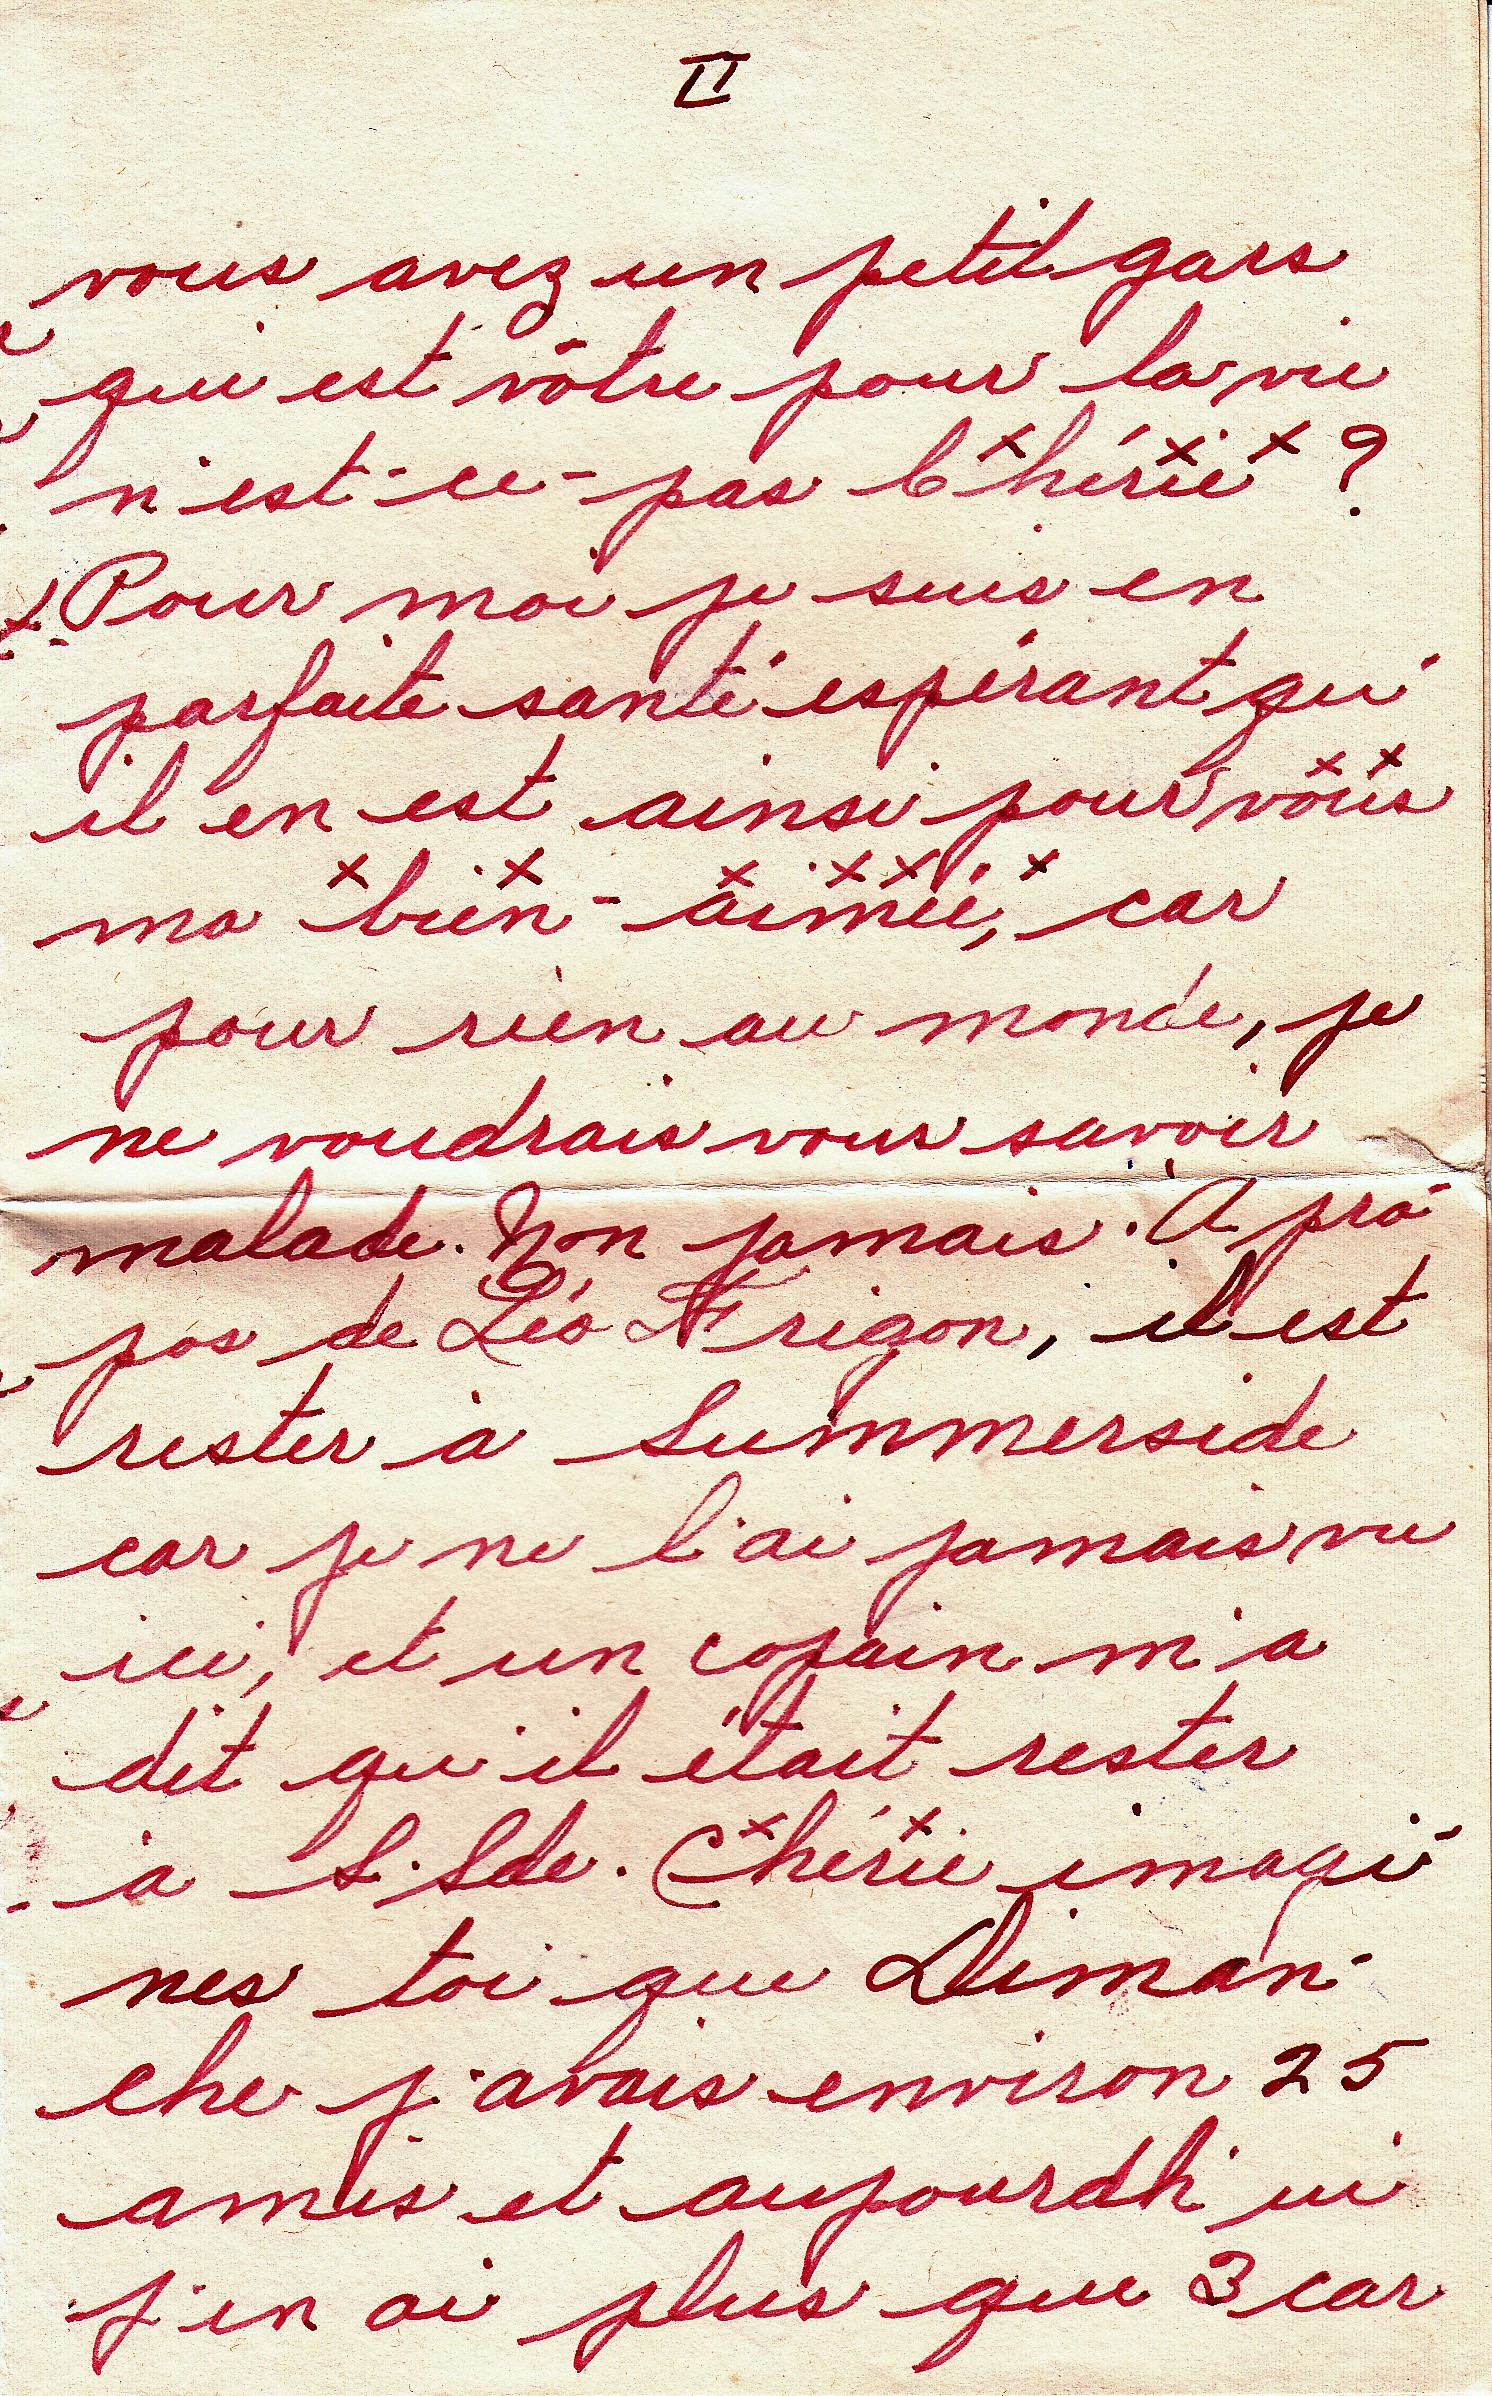 II
vous avez un petit gars
qui est vôtre pour la vie
n'est-ce-pas Chérie ?
Pour moi je suis en
parfaite santé espérant qu'
il en est ainsi pour vous
ma bien-aimée, car
pour rien au monde, je
ne voudrais vous savoir
malade. Non jamais. À pro-
pos de Léo Frigon, il est
rester à Summerside
car je ne l'ai jamais vu
ici, et un copain m'a
dit qu'il était rester
à S. Sde. Chérie imagi-
nes toi que Diman-
che j'avais environ 25
amis et aujourdh'ui
j'en ai plus que 3 car